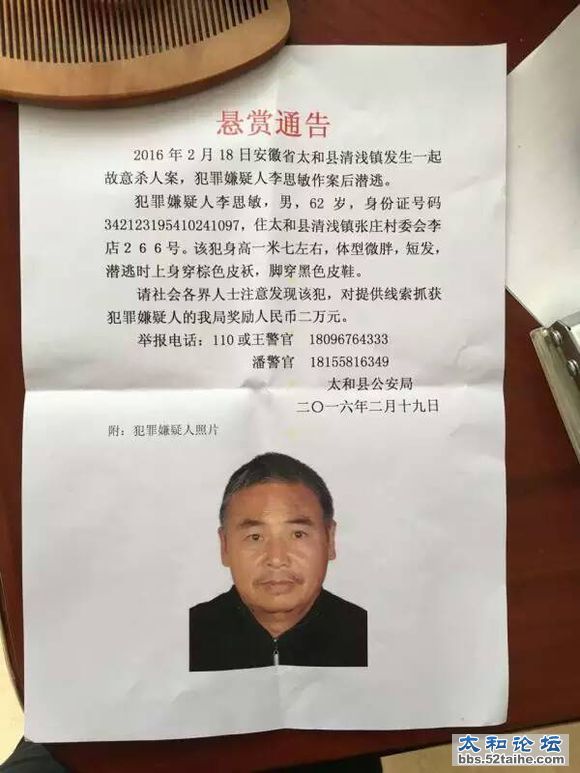 悬赏通告
2016年2月18日安徽省太和县清浅镇发生一起
故意杀人案，犯罪嫌疑人李思敏作案后潜逃。
犯罪嫌疑人李思敏，男，62岁，身份证号码
342123195410241097，住太和县清浅镇张庄村委会李
店２６６号。该犯身高一米七左右，体型微胖，短发，
潜逃时上身穿棕色皮袄，脚穿黑色皮鞋。
请社会各界人士注意发现该犯，对提供线索抓获
犯罪嫌疑人的我局奖励人民币二万元。
举报电话：110或王警官 18096764333
潘警官 18155816349
太和县公安局
二〇一六年二月十九日
附：犯罪嫌疑人照片
太和论坛
bbs.52taihe.com